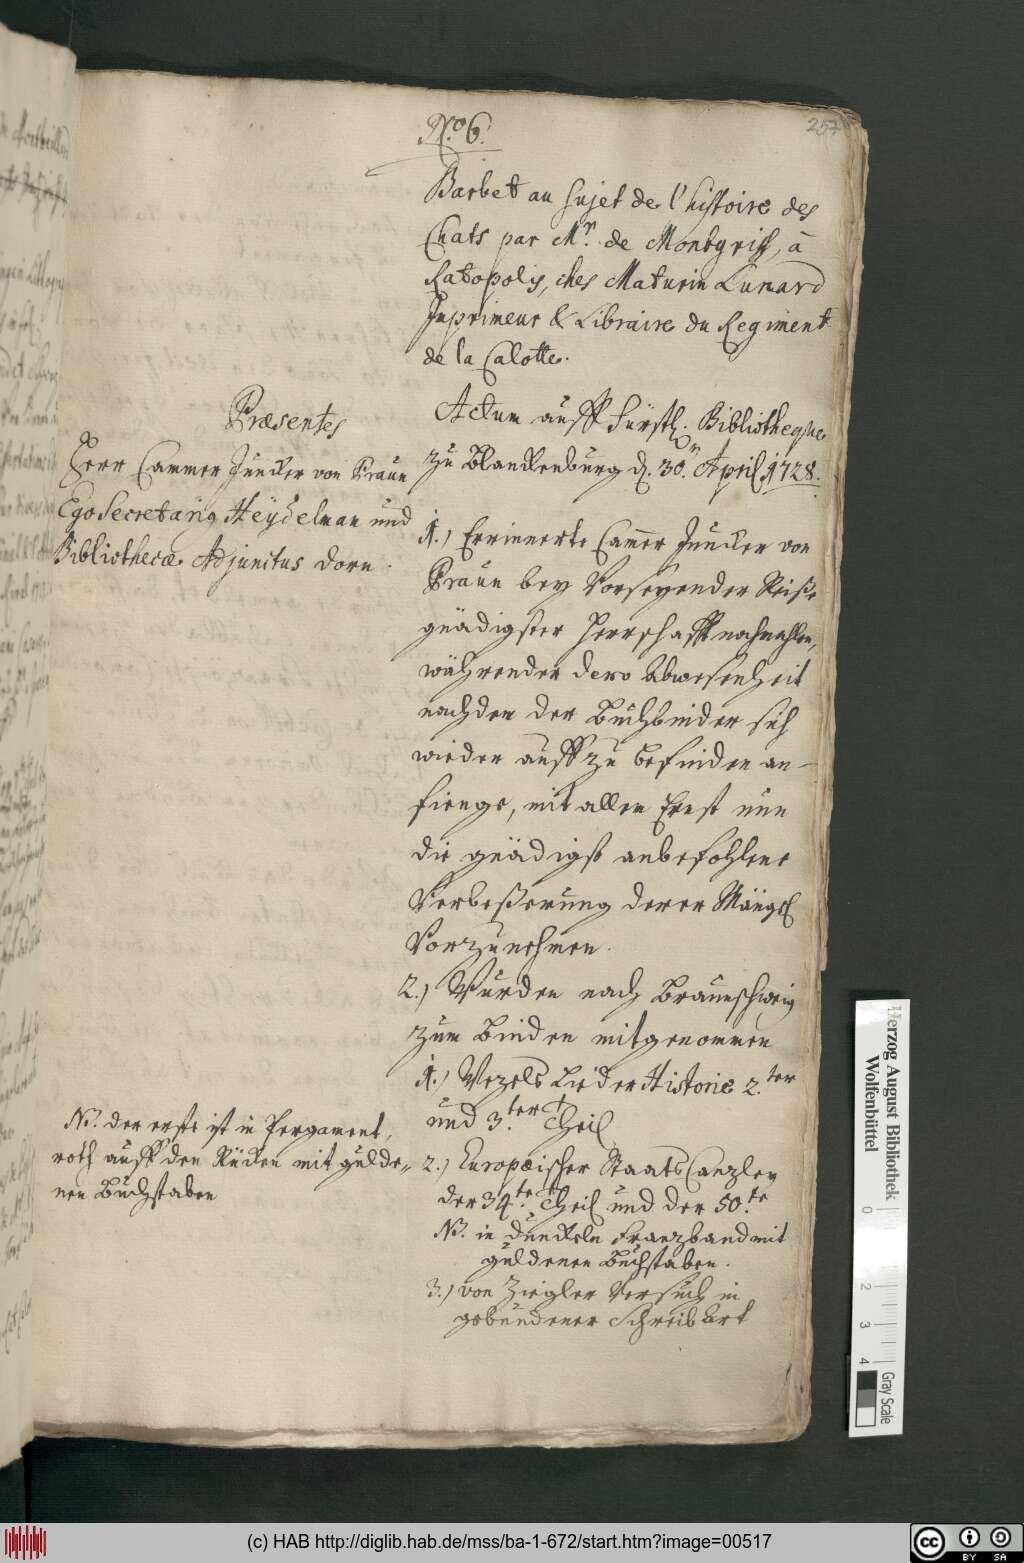 257
No. 6.
Barbet au sujet de l'histoire des
Chats par Mr. de Montgriff, à
Ratopolis, ches Maturin Lunard
Inprimeur & Libraire du Regiment
de la Calotte.
Actum auff Fürstl. Bibliotheque
zu Blanckenburg d. 30. April 1728.
Præsentes
Herr Cammer Juncker von Praun
Ego Secretarius Heÿdelman und
Bibliothecæ Adjunctus Dorn.
1.) Errinnerte Camer Juncker von
Praun beÿ Vorseyender Reiße
gnädigster Herrschafft nochmahlen,
währender dero Abwesenheit
nachdem der Buchbinder sich
wieder auff zu befinden an-
fienge, mit allem Ernst nun
die gnädigst anbefohlene
Verbeßerung derer Mängel
Vorzunehmen.
2.) Wurden nach Braunschweig
zum Binden mitgenommen
1.) Wezels Lieder Historie 2.ter
und 3.ter Theil
NB. der erste ist in Pergament,
roth auff den Rücken mit gulde-
nen Buchstaben
2.) Europæischer Staats Canzley
der 34.te Theil und der 50.te
NB. in dunckeln Franzband mit
guldenen Buchstaben.
3.) von Ziegler Versuch in
gebundener Schreib Art
Herzog August Bibliothek
Wolfenbüttel
0 2 3 4
Gray Scale
(c) HAB http://diglib.hab.de/mss/ba-1-672/start.htm?image=00517
cc BY SA